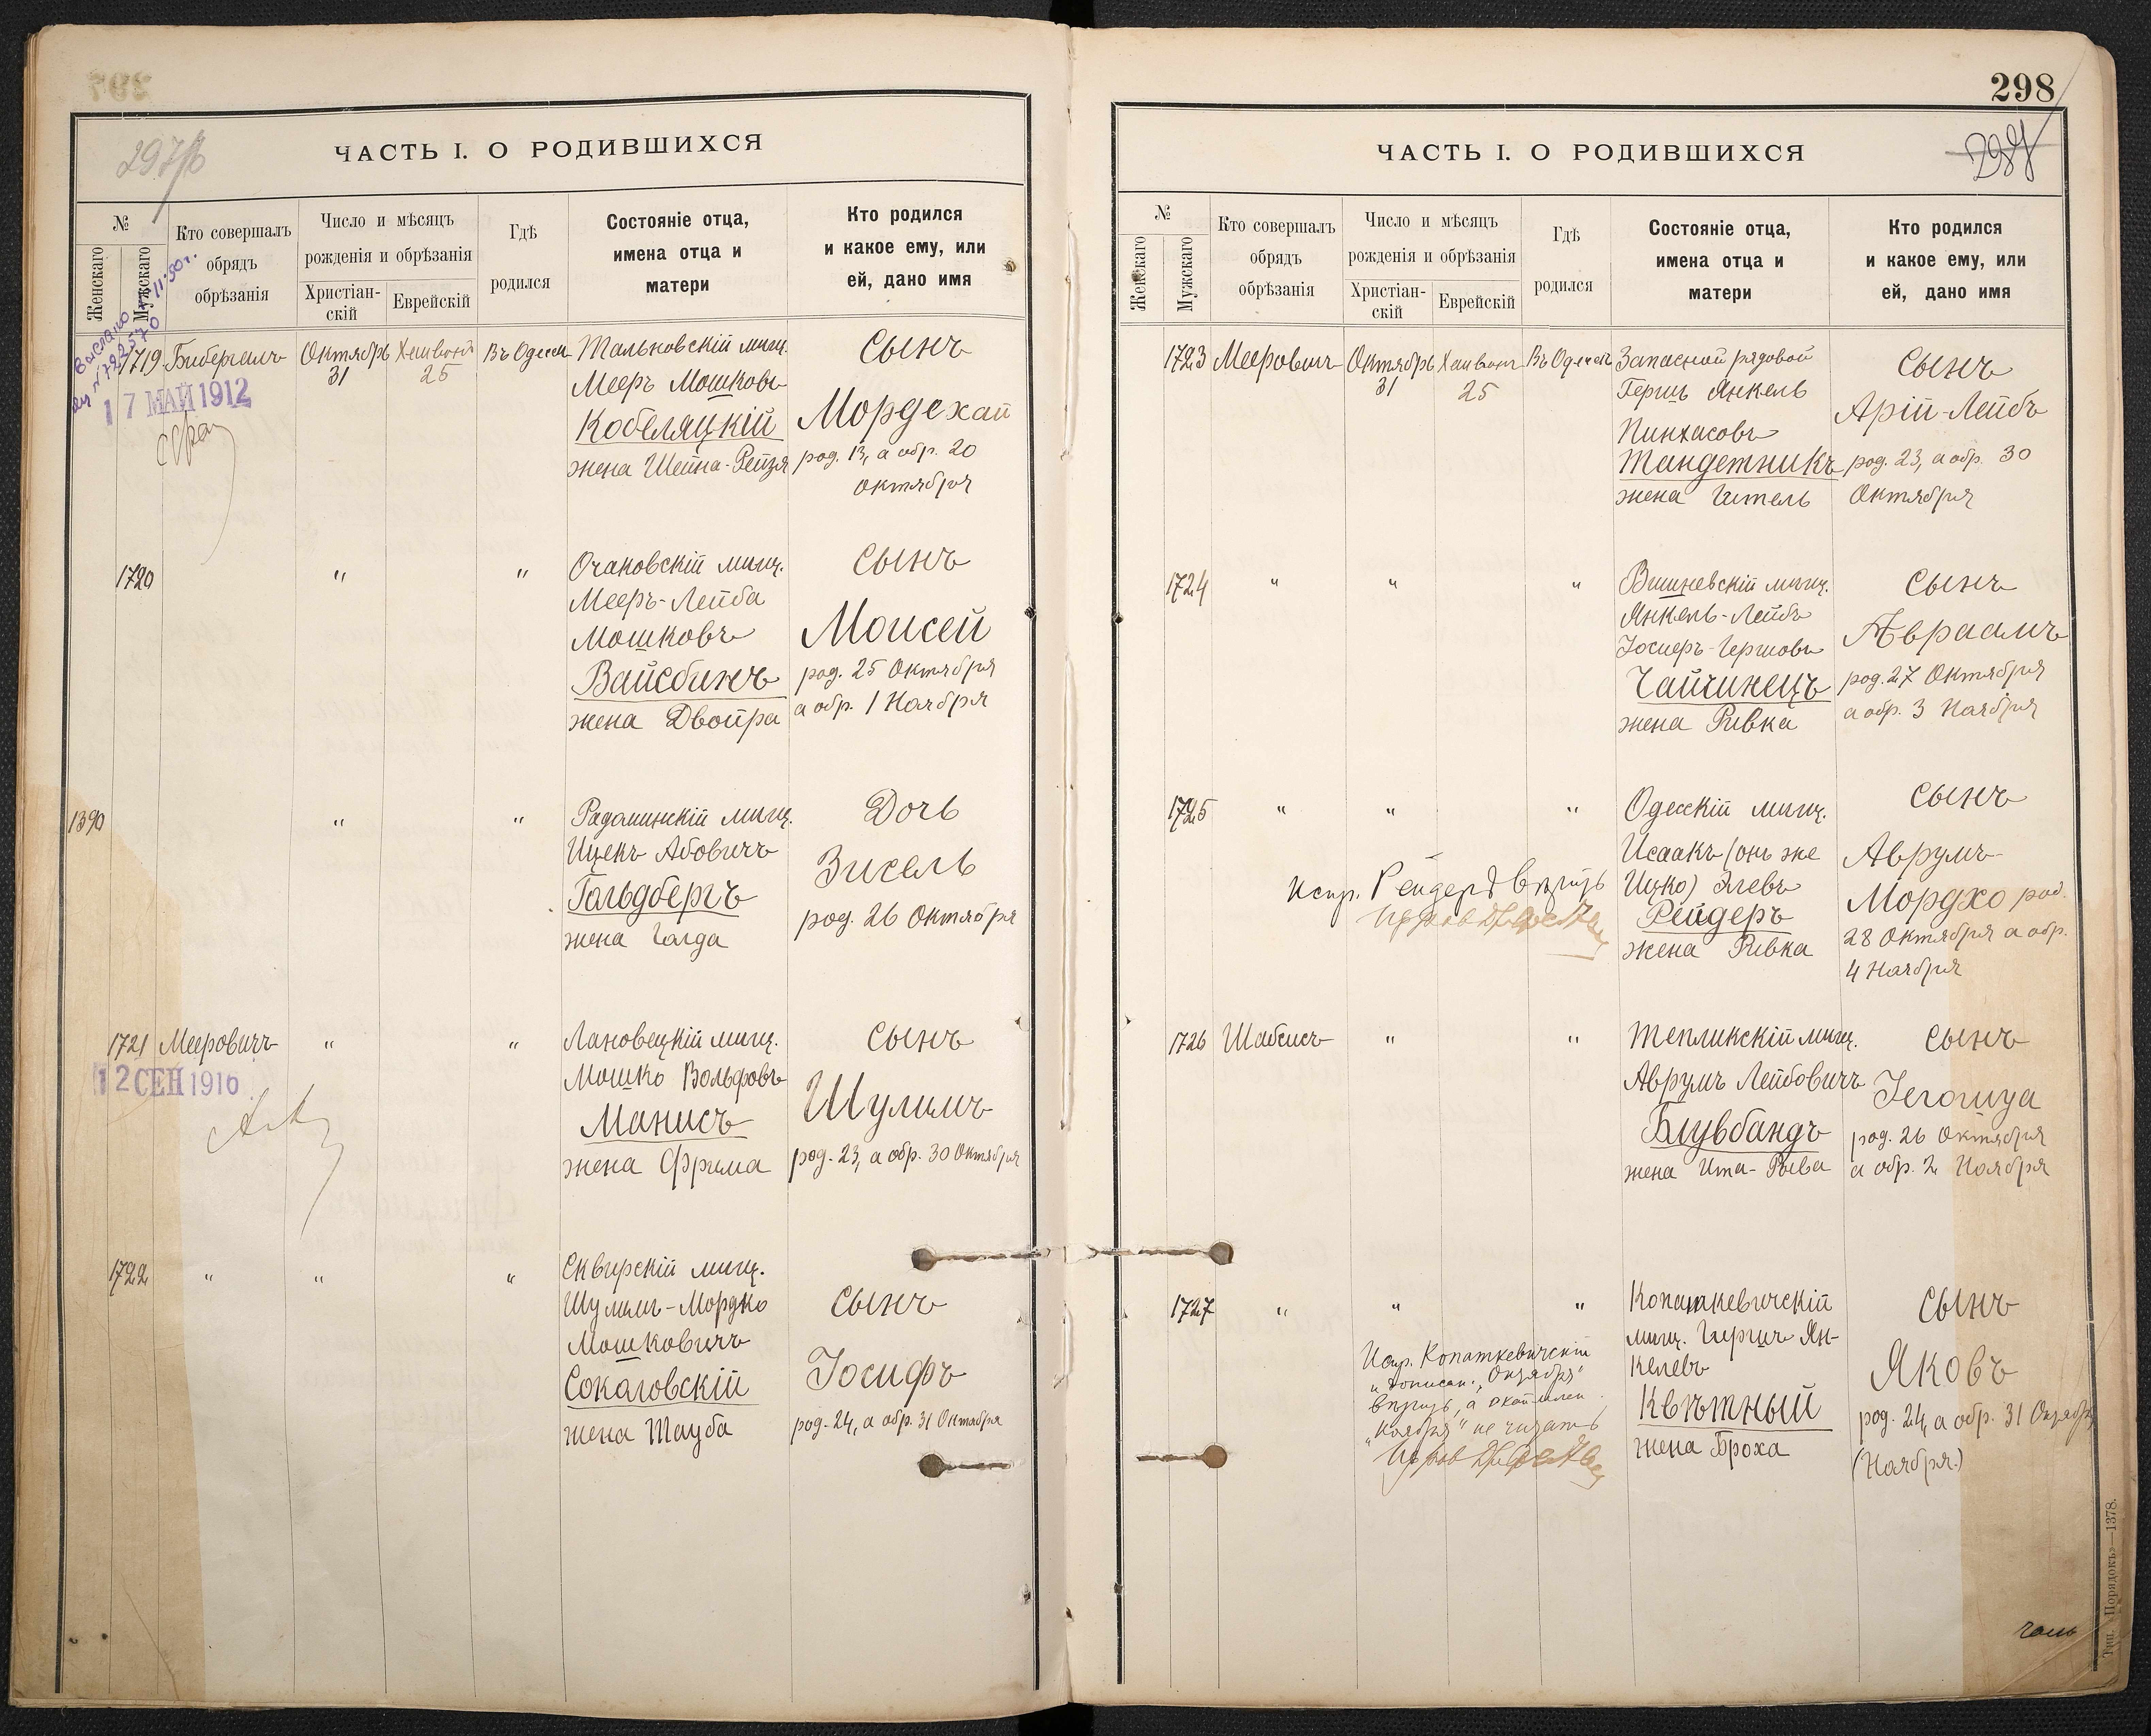 297об
ЧАСТЬ I. О РОДИВШИХСЯ
№
Женскаго
Мужскаго
Кто совершалъ
обрядъ
обрѣзанія
Число и мѣсяцъ
рожденія и обрѣзанія
Христіан-
скій
Еврейскій
Гдѣ
родился
Состояніе отца,
имена отца и
матери
Кто родился
и какое ему, или
ей, дано имя
1719
17 МАЙ 1912
Бибергалъ
Октябрь
31
Хешвонъ
25
Въ Одессѣ
Тальновскій мѣщ.
Мееръ Мошковъ
Кобеляцкій
жена Шейна-Рейзя
Сынъ
Мордехай
род. 13, а обр. 20
Октября
1720
"
"
Очаковскій мѣщ.
Мееръ-Лейба
Мошковъ
Вайсбинъ
жена Двойра
Сынъ
Моисей
род. 25 Октября
а обр. 1 Ноября
1390
"
"
Радоминскій мѣщ.
Ицекъ Абовичъ
Гольдбергъ
жена Голда
Дочь
Зисель
род. 26 Октября
1721
12 СЕН 1916
Мееровичъ
"
"
Лановецкій мѣщ.
Мошко Вольфовъ
Манисъ
жена Фрима
Сынъ
Шулимъ
род. 23, а обр. 30 Октября
1722
"
"
"
Сквирскій мѣщ.
Шулимъ-Мордко
Мошковичъ
Соколовскій
жена Тауба
Сынъ
Іосифъ
род. 24, а обр. 31 Октября
298
ЧАСТЬ I. О РОДИВШИХСЯ
№
Женскаго
Мужскаго
Кто совершалъ
обрядъ
обрѣзанія
Число и мѣсяцъ
рожденія и обрѣзанія
Христіан-
скій
Еврейскій
Гдѣ
родился
Состояніе отца,
имена отца и
матери
Кто родился
и какое ему, или
ей, дано имя
1723
Мееровичъ
Октябрь
31
Хешвонъ
25
Въ Одессѣ
Запасной рядовой
Гершъ Янкель
Пинхасовъ
Тандетникъ
жена Гитель
Сынъ
Арій-Лейбъ
род. 23, а обр. 30
Октября
1724
"
"
"
Вишневскій мѣщ.
Янкель-Лейбъ
Іосиеръ-Гершовъ
Чайчинецъ
жена Ривка
Сынъ
Авраамъ
род. 27 Октября
а обр. 3 Ноября
1725
"
"
"
Испр. Рейдеръ вѣрить
Одесскій мѣщ.
Исаакъ (онъ же
Ицко) Элевъ
Рейдеръ
жена Ривка
Сынъ
Аврумъ-
Мордко род.
28 Октября а обр.
4 Ноября
1726
Шабсисъ
"
"
Тепликскій мѣщ.
Аврумъ Лейбовичъ
Блувбандъ
жена Ита-Рыва
Сынъ
Іегошуа
род. 26 Октября
а обр. 2 Ноября
1727
"
"
"
Испр. Копаткевичскій
и дописан. "Октября"
вѣрить, а
"Ноября" не читать
Копаткевичскій
мѣщ. Гиршъ Ян-
келевъ
Квѣтный
жена Броха
Сынъ
Яковъ
род. 24, а обр. 31 Октября
(Ноября.)
Тип. «Порядокъ»—1378.